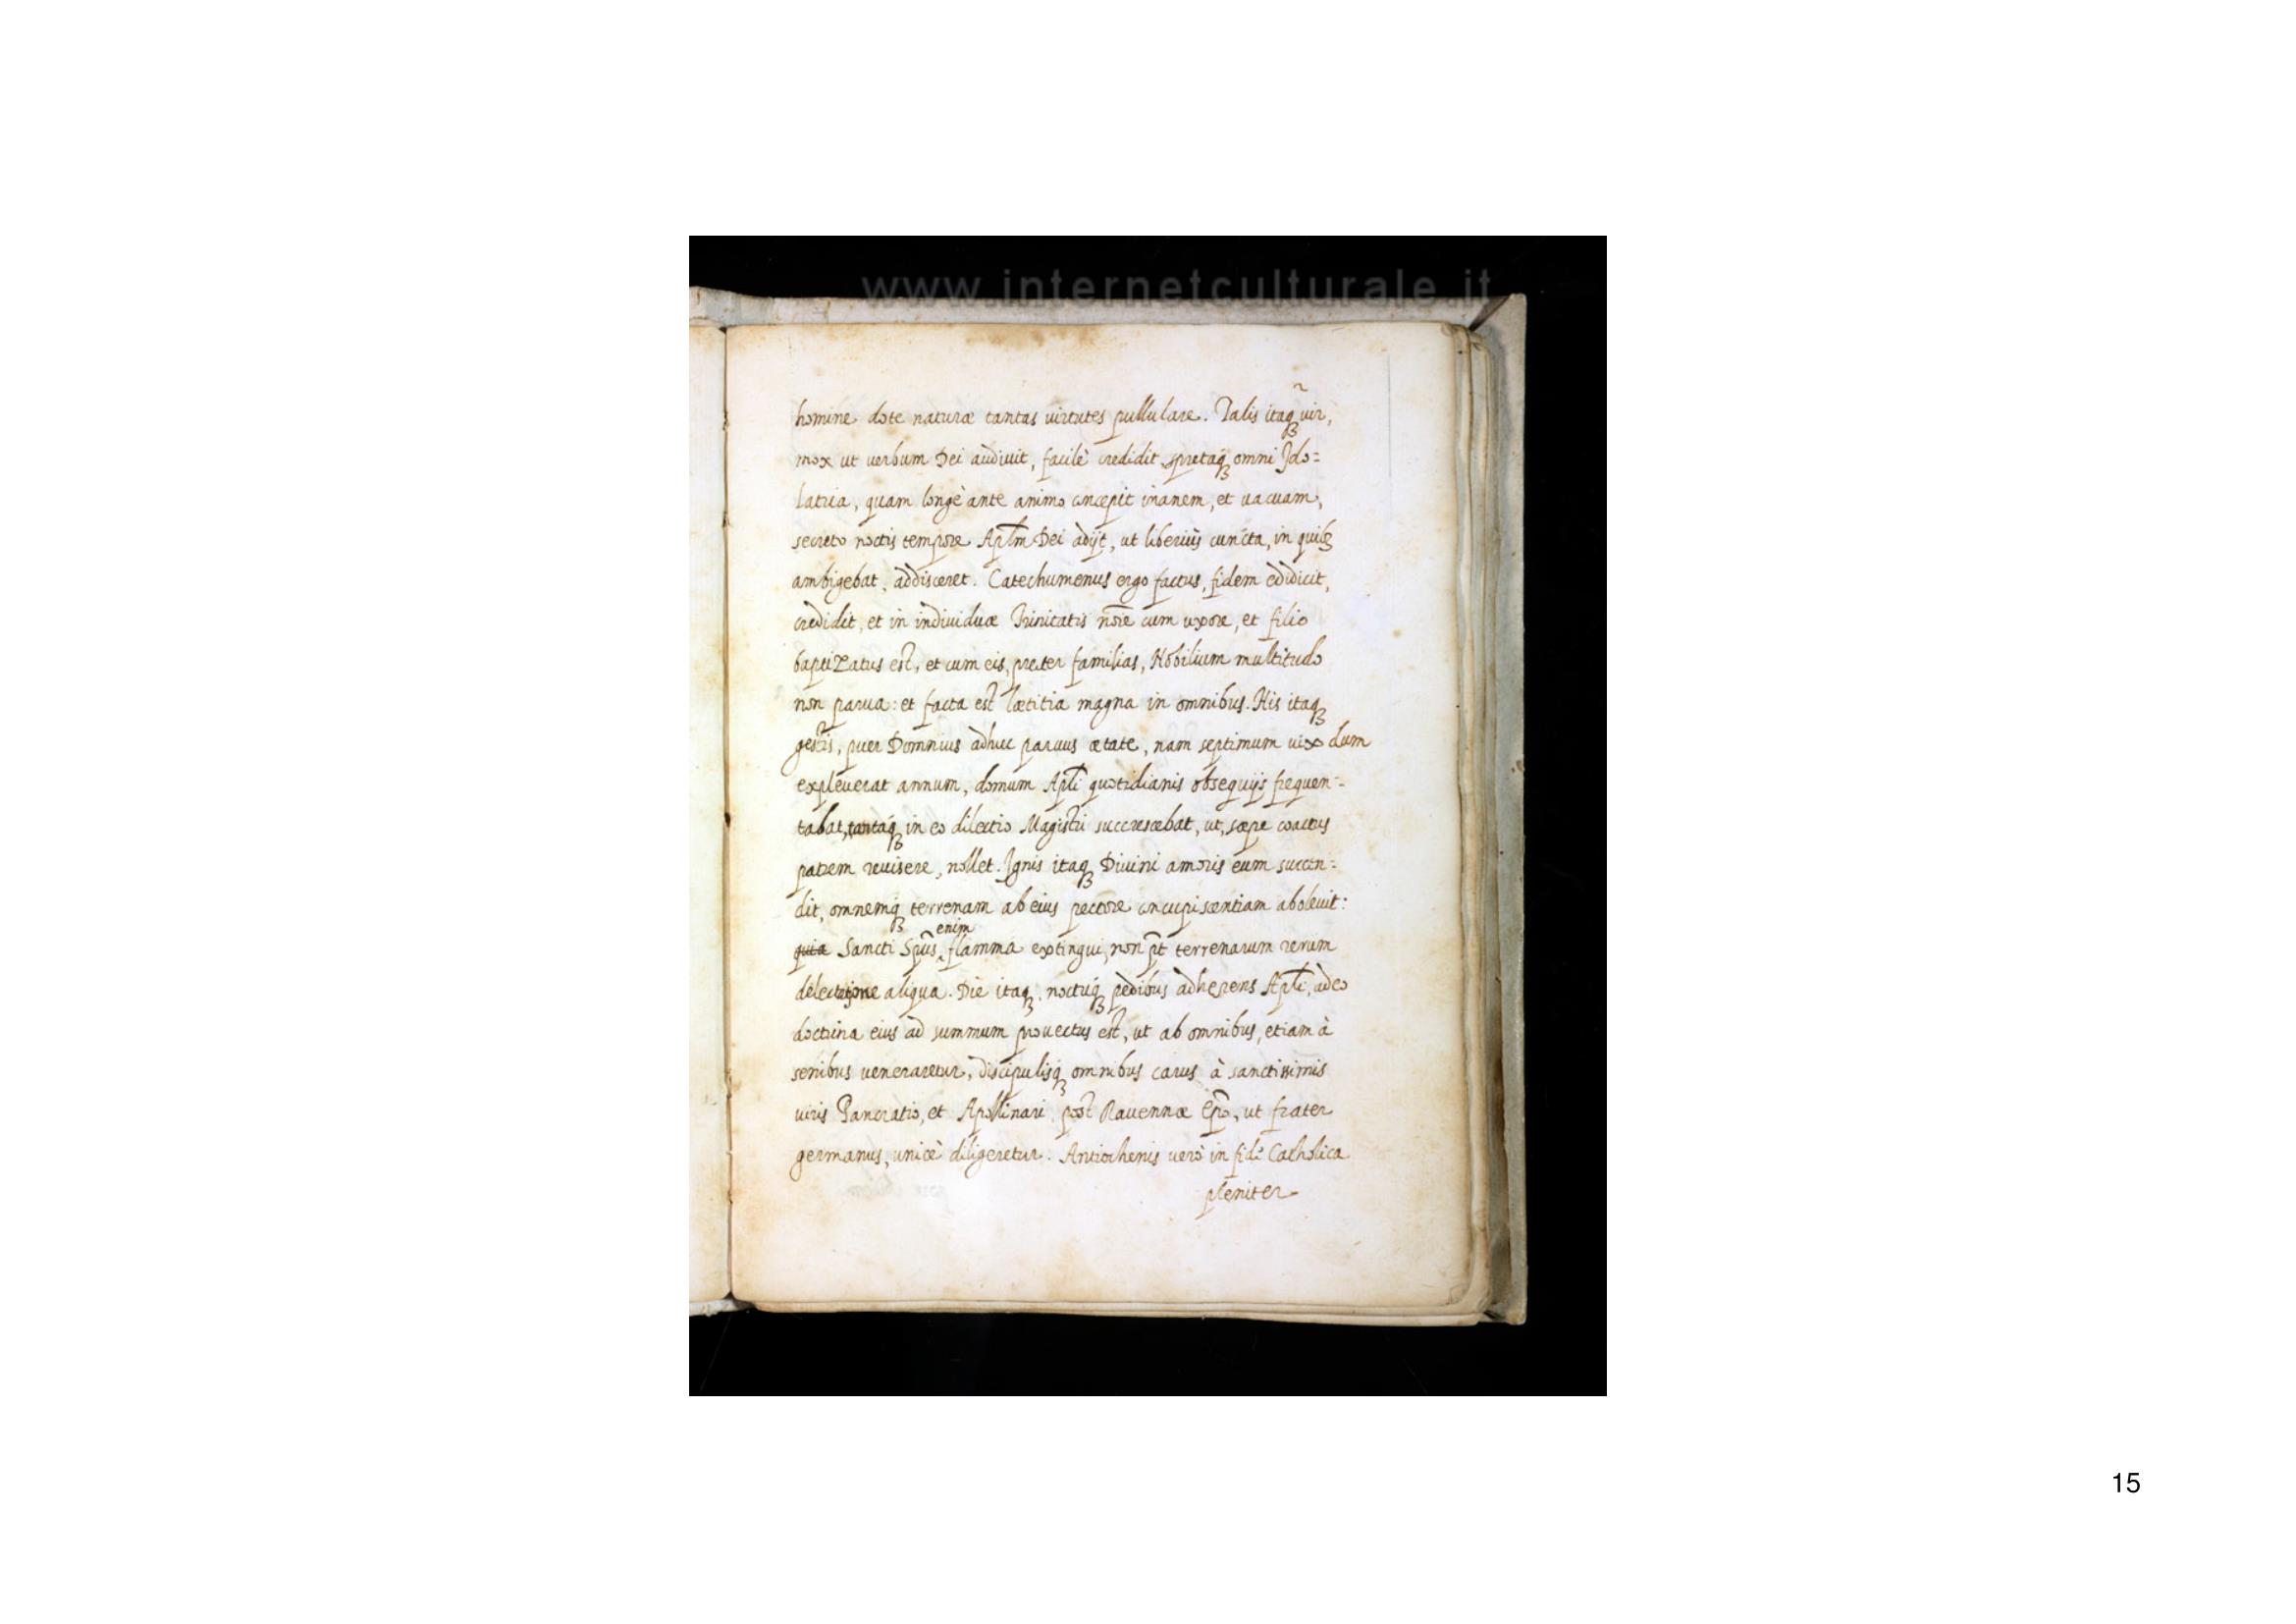 www.internetculturale.it
2
homine dote naturæ tantas virtutes pullulare. Talis itaqꝫ vir,
mox ut verbum Dei audiuit, facilè credidit, spretaqꝫ omni Ido=
latria, quam longè ante animo concepit inanem, et uacuam,
secreto noctis tempore Apl̃m Dei adijt, ut liberiùs cuncta, in quibꝫ
ambigebat, addisceret. Catechumenus ergo factus, fidem edidicit,
credidit, et in indiuiduæ Trinitatis nõie cum uxore, et filio
baptiZatus est, et cum eis, præter familias, Nobilium multitudo
non parua: et facta est lætitia magna in omnibus. His itaqꝫ
gestis, puer Domnius adhuc paruus ætate, nam septimum uix dum
expleuerat annum, domum Apl̃i quotidianis obsequijs frequen=
tabat, tantáqꝫ in eo dilectio Magistri succrescebat, ut, sæpe coactus
patrem reuisere, nollet. Ignis itaqꝫ Diuini amoris eum succen=
dit, omnemqꝫ terrenam ab eius pectore concupiscentiam aboleuit:
enim
quia Sancti Spũs ‸ flamma extingui, non põt terrenarum rerum
delectatione aliqua. Die itaqꝫ, noctuqꝫ pedibus adherens Apl̃i, adeo
doctrina eius ad summum prouectus est, ut ab omnibus, etiam à
senibus ueneraretur, discipulisqꝫ omnibus carus à sanctissimis
uiris Pancratio, et Apollinari post Rauennæ Epõ, ut frater
germanus, unicè diligeretur. Antiochenis verò in fide Catholica
pleniter
15